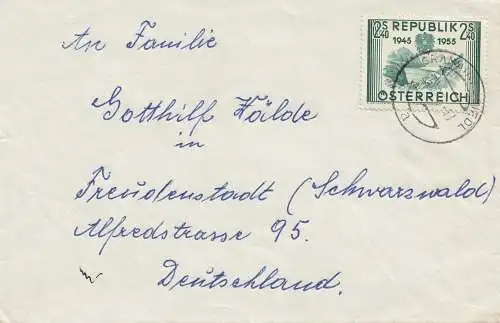 An Familie
Gotthilf Wälde
in
Freudenstadt (Schwarzwald)
Alfredstrasse 95.
Deutschland.
2S40 REPUBLIK 2S40
1945 1955
ÖSTERREICH